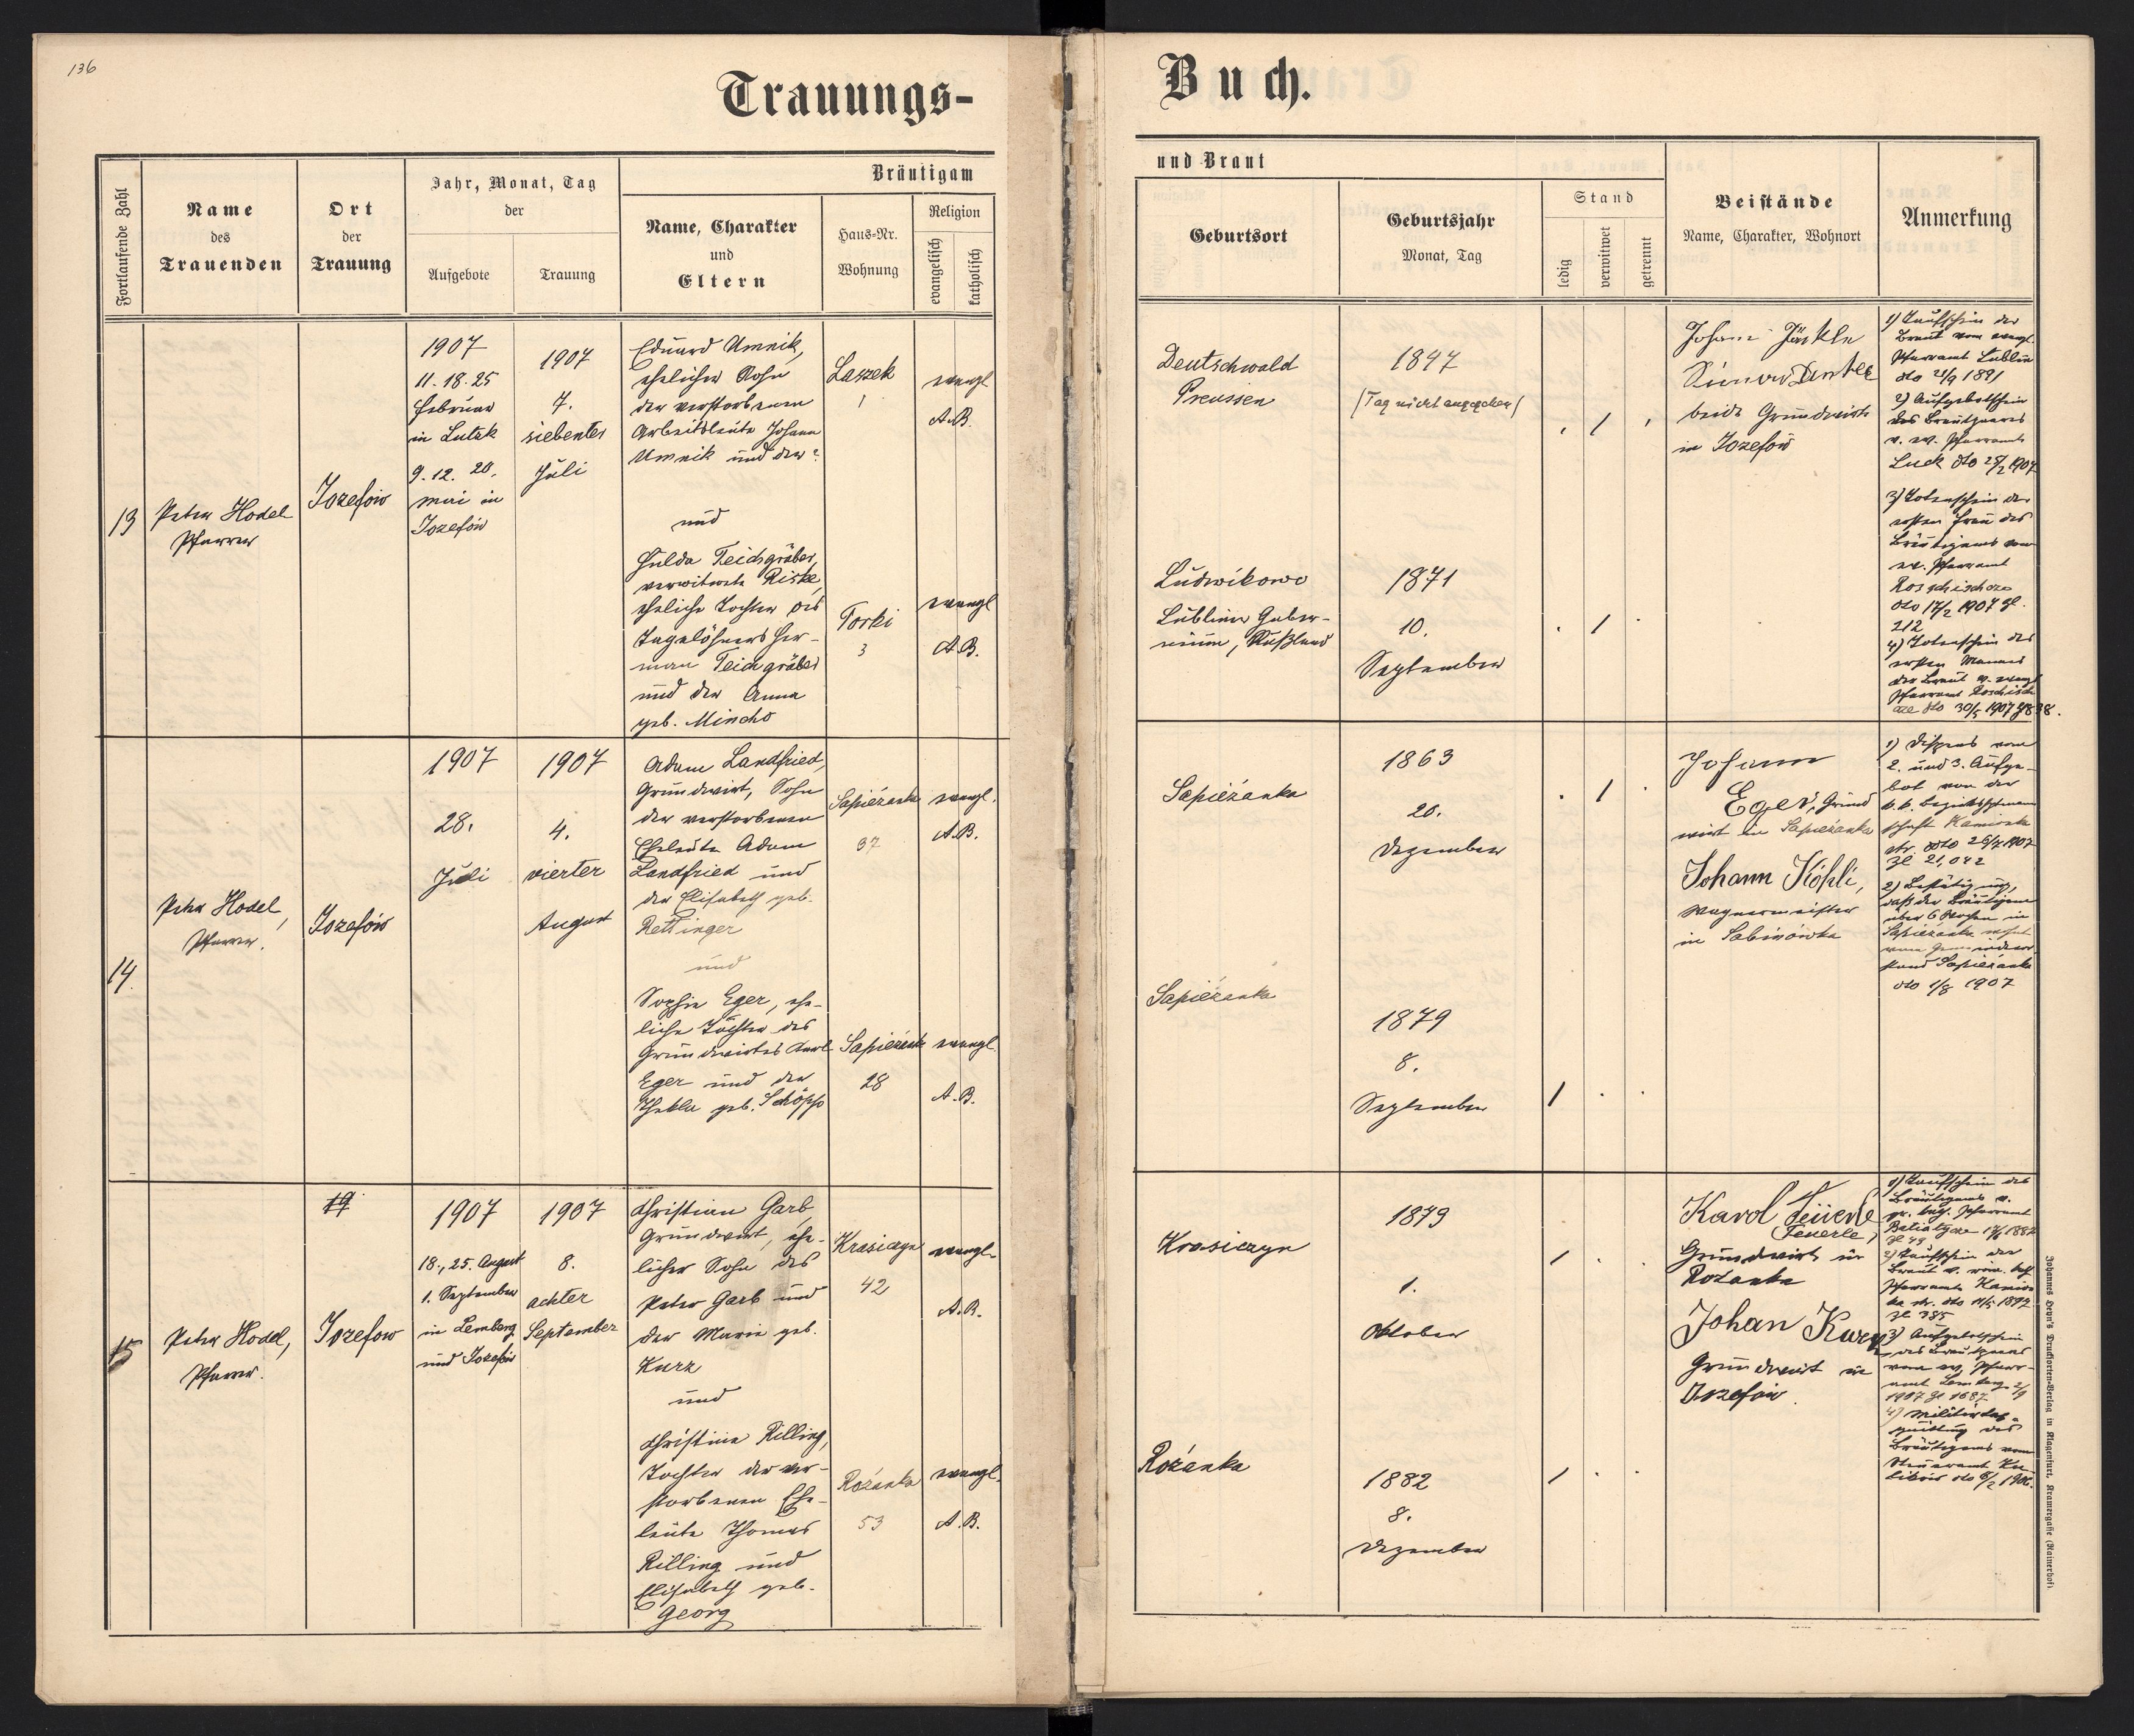 136
Trauungs-
Buch.
Bräutigam
und Braut
Fortlaufende Zahl
Name
des
Trauenden
Ort
der
Trauung
Jahr, Monat, Tag
der
Aufgebote
Trauung
Name, Charakter
und
Eltern
Haus-Nr.
Wohnung
Religion
evangelisch
katholisch
Geburtsort
Geburtsjahr
Monat, Tag
Stand
ledig
verwitwet
getrennt
Beistände
Name, Charakter, Wohnort
Anmerkung
13
Peter Hodel
Pfarrer
Jozefów
1907
11. 18. 25
Februar
in Lutzk
9. 12. 20.
Mai in
Jozefów
1907
7.
siebenter
Juli
Eduard Umnik,
ehelicher Sohn
der verstorbenen
Arbeitsleute Johann
Umnik und der ?
und
Hulda Teichgräber,
verwitwete Riske,
eheliche Tochter des
Tagelöhners Her-
man Teichgräber
und der Anna
geb. Mincho
Laszek
1
evangl
A.B.
Torki
3
evangl
A.B.
Deutschwald
Preussen
1847
(Tag nicht angegeben)
Ludwikowo
Lubliner Guber-
nium, Rußland
1871
10.
September
Johann Jäckle
beide Grundwirte
in Jozefów
1) Taufschein der
Braut vom evangl.
Pfarramt Lublin
dto 21/9 1891
2) Aufgebotschein
des Brautpaares
v. ev. Pfarramt
Luck dto 28/2 1907
3) Totenschein der
ersten Frau des
Bräutigams vom
ev. Pfarramt
Roschischcze
dto 17/2 1907 Zl.
212
4) Totenschein des
ersten Mannes
der Braut v. evangl
Pfarramt Roschisch
cze dto 30/5 1907
14.
Peter Hodel,
Pfarrer.
Jozefów
1907
28.
Juli
1907
4.
vierter
August
Adam Landfried,
Grundwirt, Sohn
der verstorbenen
Eheleute Adam
Landfried und
der Elisabeth geb.
Rettinger
und
Sophie Eger, ehe-
liche Tochter des
Grundwirtes Karl
Eger und der
Thekla geb. Schöpp
Sapieżanka
37
evangl.
A.B.
Sapieżank
28
evangl.
A.B.
Sapieżanka
1863
26.
Dezember
Sapieżanka
1879
8.
September
Johann
Eger, Grund
wirt in Sapieżanka
Johann Köhli,
Wagnermeister
in Sabinówka
1) Dispens vom
2. und 3. Aufge-
bot von der
k. k. Bezirkshptman
schaft Kamionka
str. dto 26/7 1907
Zl 21,042
2) Bestätigung,
daß der Bräutigam
über 6 Wochen in
Sapieżanka wohnt
vom Gemeindevor
stand Sapieżanka
dto 1/8 1907
15
Peter Hodel,
Pfarrer.
19
Jozefow
1907
18., 25. August
1. September
in Lemberg
und Jozefów
1907
8.
achter
September
Christian Garb
Grundwirt, ehe-
licher Sohn des
Peter Garb und
der Marie geb.
Kurz
und
Christine Rilling,
Tochter der ver-
storbenen Ehe-
leute Thomas
Rilling und
Elisabeth geb.
Georg
Krasiczyn
42
evangl.
A.B.
Rożanka
53
evangl.
A.B.
Krasiczyn
1879
1.
Oktober
Rożanka
1882
8.
Dezember
Karol Feuerle
Feuerle,
Grundwirt in
Rożanka
Johan Kurz
Grundwirt in
Jozefów.
1) Taufschein des
Bräutigams v.
gr. kath. Pfarramt
Batiatycze
2) Taufschein der
Braut v. röm. kath
Pfarramte Kamion
ka str. dto 11/5 1897
Zl 385
3) Aufgebotschein
des Brautpaares
vom ev. Pfarr-
amt Lemberg 2/9
1907 Zl 1687
4) Militärtax-
quittung des
Bräutigams vom
Steueramt Ku-
likow dto 6/2 1906.
Johannes Heyn's Drucksorten-Verlag in Klagenfurt, Kramergasse (Rainerhof)